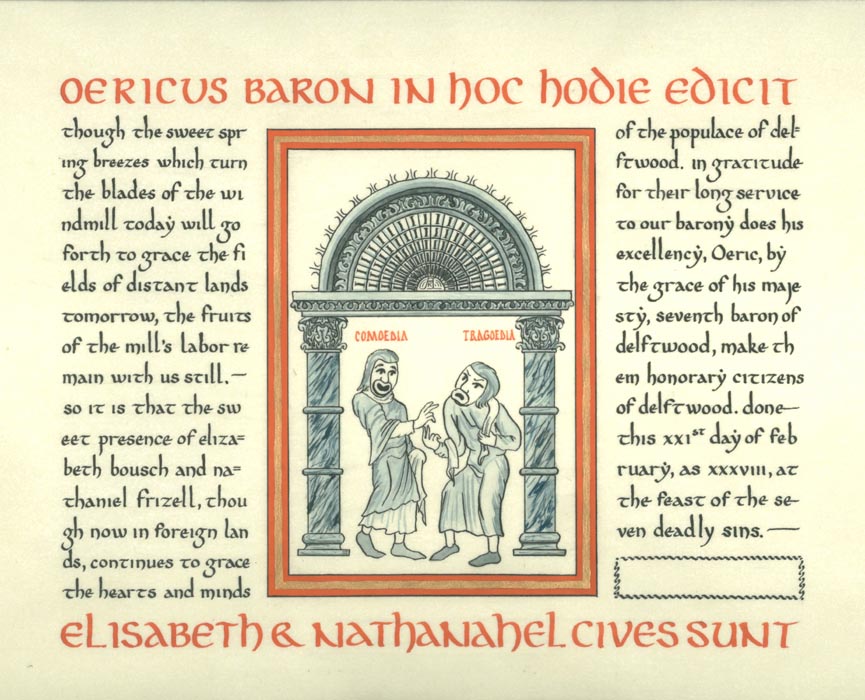 OERICUS BARON IN HOC HODIE EDICIT
though the sweet spr
ing breezes which turn
the blades of the wi
ndmill today will go
forth to grace the fi
elds of distant lands
tomorrow, the fruits
of the mill's labor re
main with us still.—
so it is that the sw
eet presence of eliza=
beth bousch and na=
thaniel frizell, thou
gh now in foreign lan
ds, continues to grace
the hearts and minds
COMOEDIA
TRAGOEDIA
of the populace of del=
ftwood. in gratitude
for their long service
to our barony does his
excellency, Oeric, by
the grace of his maje
sty, seventh baron of
delftwood, make th
em honorary citizens
of delftwood. done—
this xxist day of feb
ruary, as xxxviii, at
the feast of the se=
ven deadly sins.—
ELISABETH & NATHANAHEL CIVES SUNT